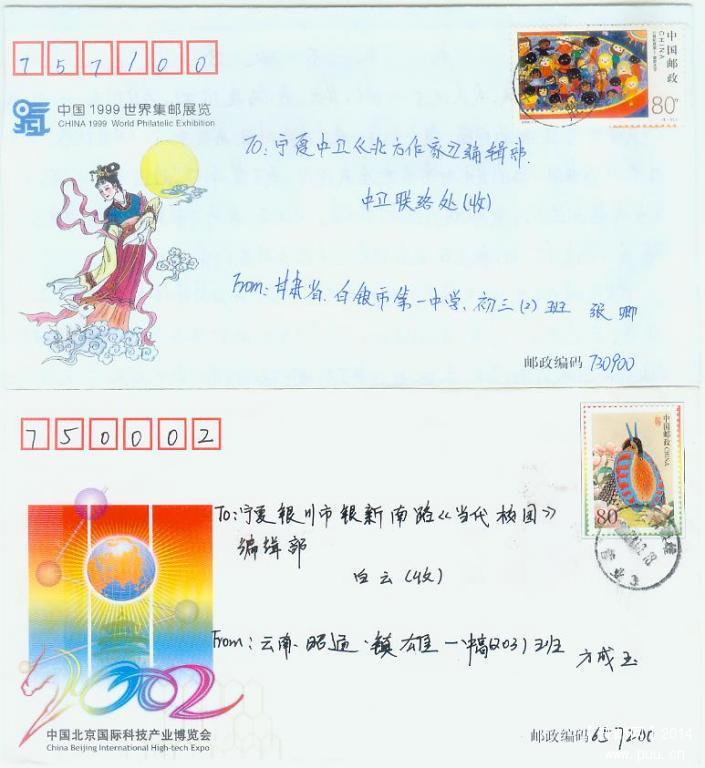 757100
中国邮政
CHINA
80分
中国1999世界集邮展览
CHINA 1999 World Philatelic Exhibition
To:宁夏中卫《北方作家》编辑部.
中卫联络处(收)
From:甘肃省.白银市第一中学,初三(2)班 张卿
邮政编码 730900
750002
中国邮政
CHINA
80
To:宁夏银川市银新南路《当代校园》
编辑部
白云(收)
From:云南.昭通.镇雄一中高(203)班 方成玉
2002
中国北京国际科技产业博览会
China Beijing International High-tech Expo
邮政编码 657200
2014
www.puu.cn